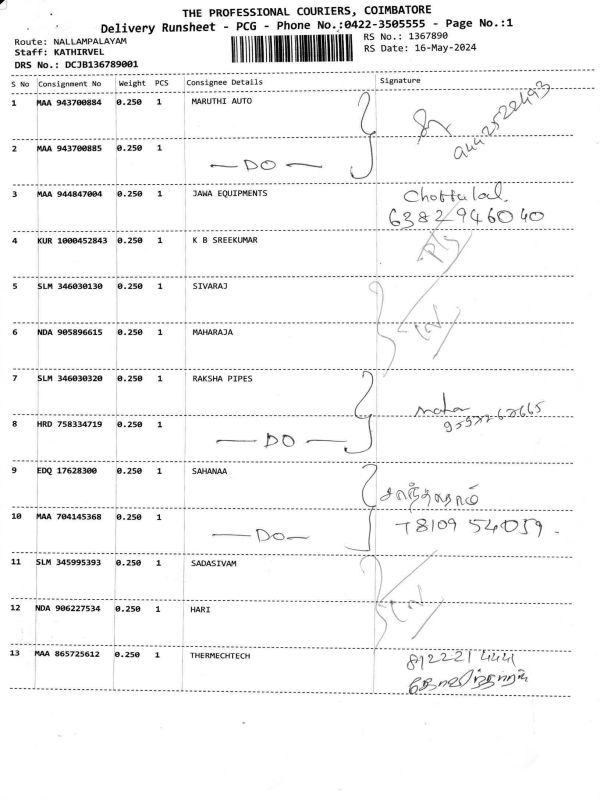 THE PROFESSIONAL COURIERS, COIMBATORE
Delivery Runsheet - PCG - Phone No.:0422-3505555 - Page No.:1
Route: NALLAMPALAYAM
Staff: KATHIRVEL
DRS No.: DCJB136789001
RS No.: 1367890
RS Date: 16-May-2024
S No Consignment No Weight PCS Consignee Details Signature
1 MAA 943700884 0.250 1 MARUTHI AUTO
2 MAA 943700885 0.250 1 — DO —
3 MAA 944847004 0.250 1 JAWA EQUIPMENTS
6382946040
4 KUR 1000452843 0.250 1 K B SREEKUMAR
5 SLM 346030130 0.250 1 SIVARAJ
6 NDA 905896615 0.250 1 MAHARAJA
7 SLM 346030320 0.250 1 RAKSHA PIPES
8 HRD 758334719 0.250 1 — DO —
9 EDQ 17628300 0.250 1 SAHANAA
10 MAA 704145368 0.250 1 — DO —
78109 54059.
11 SLM 345995393 0.250 1 SADASIVAM
12 NDA 906227534 0.250 1 HARI
13 MAA 865725612 0.250 1 THERMECHTECH
8122221 4441